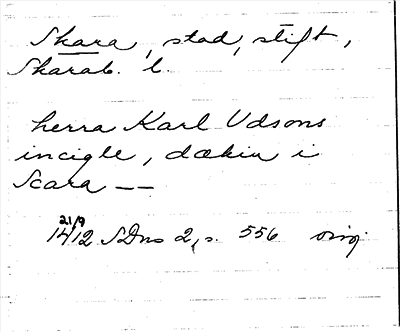 Skara, stad, stift,
Skarab. l.
herra Karl Udsons
incigle, dækin i
Scara —
21/9
1412 SDns 2, s. 556 orig.